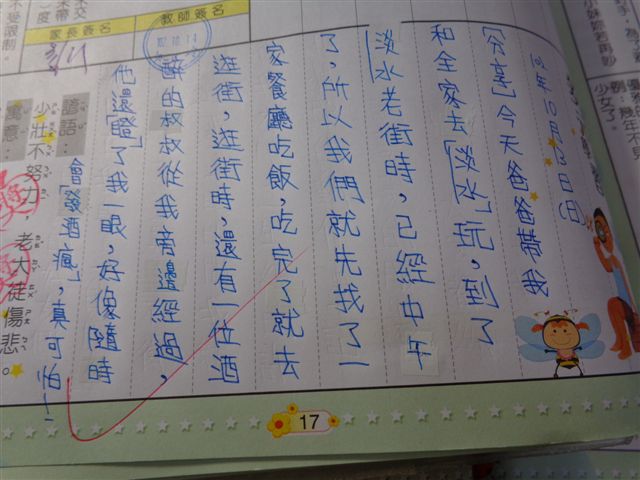 少女了。
年10月12日(日)
「分享」今天爸爸帶我
和全家去「淡水」玩，到了
「淡水」老街時，已經中午
了，所以我們就先找了一
家餐廳吃飯，吃完了就去
逛街，逛街時，還有一位酒
醉的叔叔從我旁邊經過，
他還「瞪」了我一眼，好像隨時
會「發酒瘋」，真可怕！
教師簽名
家長簽名
102.10.14
諺語：
少壯不努力 老大徒傷悲。
寓意：
17